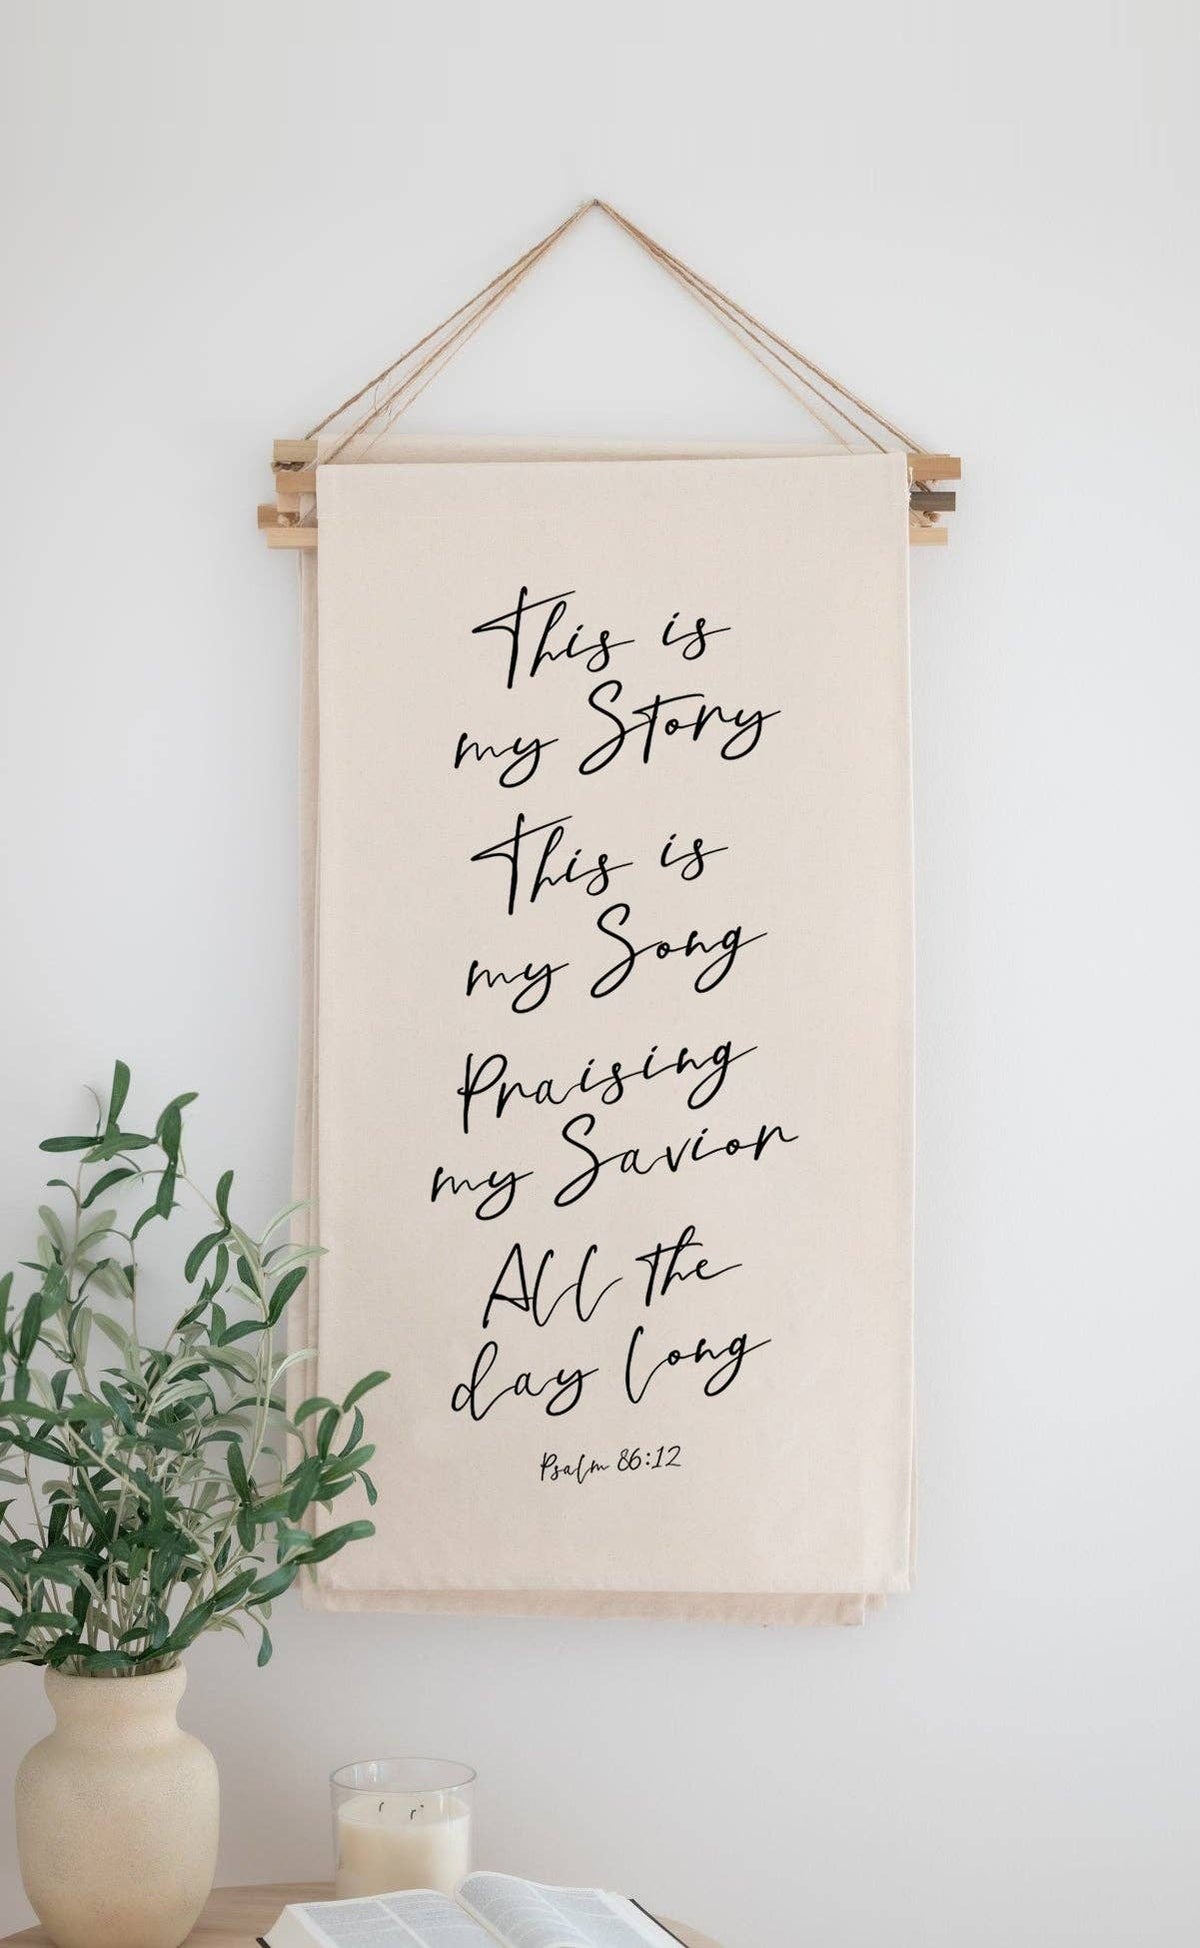 This is
my Story
This is
my Song
Praising
my Savior
All the
day long
Psalm 86:12